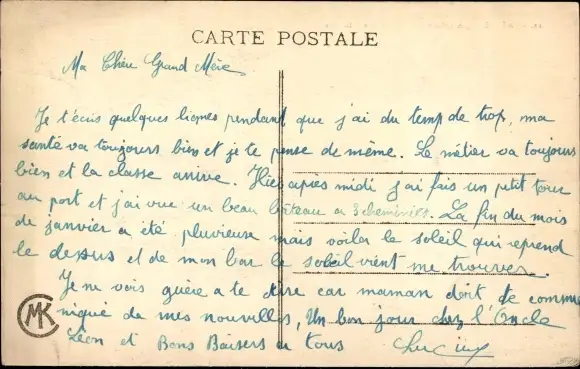 CARTE POSTALE
Ma Chère Grand Mère
Je t'écris quelques lignes pendant que j'ai du temp de trop, ma
santé va toujours bien et je te pense de même. Le métier va toujours
bien et la classe arrive. Hier après midi j'ai fais un petit tour
au port et j'ai vue un beau bâteau a 3 cheminées. La fin du mois
de janvier a été pluvieuse mais voila le soleil qui reprend
le dessus et de mon bar le soleil vient me trouver.
Je ne vois guère a te dire car maman doit te commu
niqué de mes nouvelles, Un bon jour chez l'Oncle
Léon et Bons Baisers a tous Lucien
MK